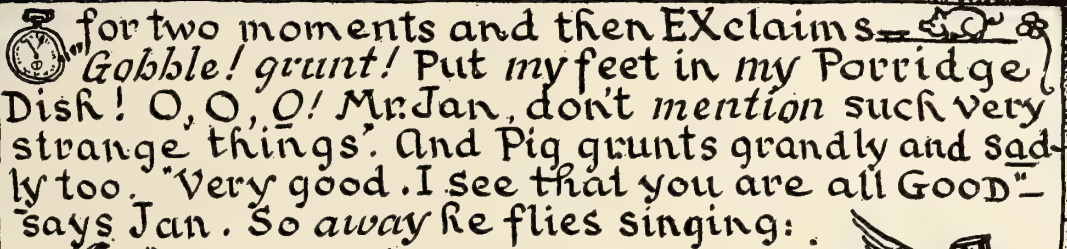 for two moments and then EXclaims—
"Gobble! grunt! Put my feet in my Porridge
Dish! O, O, O! Mr. Jan, don't mention such very
strange things". And Pig grunts grandly and sad-
ly too. "Very good. I see that you are all GOOD"—
says Jan. So away he flies singing: